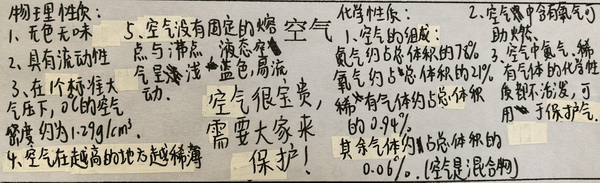 物理性质:
1、无色无味
2、具有流动性
3、在1个标准大
气压下,0℃的空气
密度约为1.29g/cm³.
4、空气在越高的地方越稀薄
5、空气没有固定的熔
点与沸点 液态空
气呈浅蓝色,易流
动.
空气
空气很宝贵,
需要大家来
保护!
化学性质:
1、空气的组成:
氮气约占总体积的78%
氧气约占总体积的21%
稀有气体约占总体积
的0.94%.
其余气体约占总体积的
0.06%.(空气是混合物)
2、空气中含有氧气可
助燃.
3、空气中氮气、稀
有气体的化学性
质都不活泼,可
用于保护气.